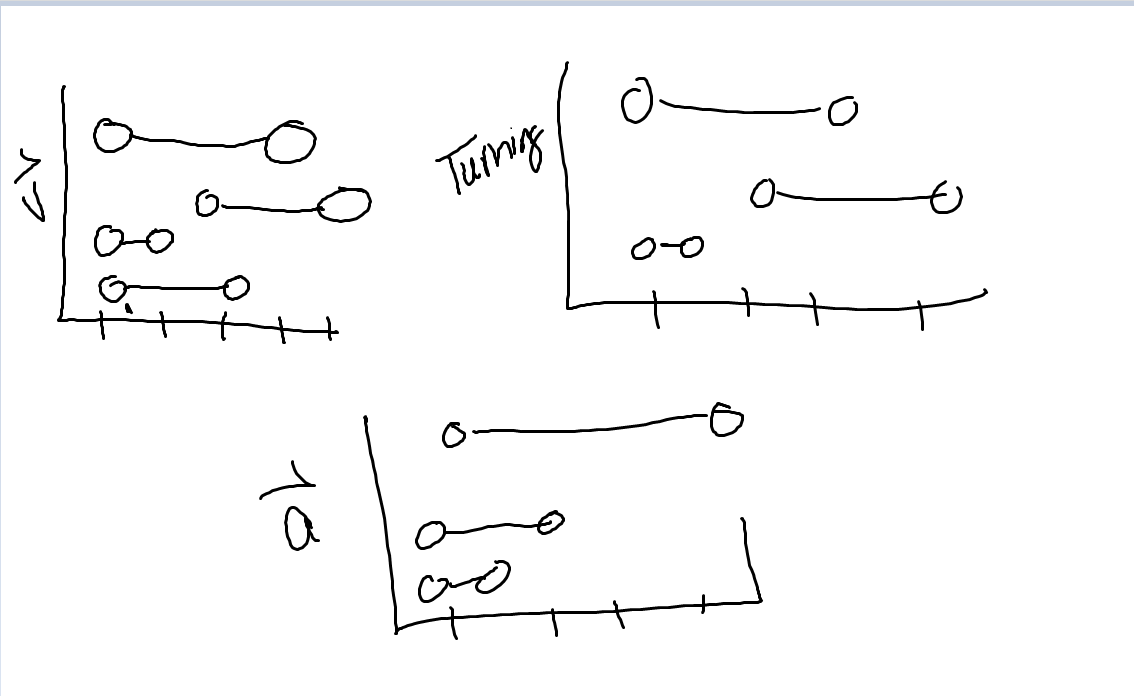 v
Turning
a